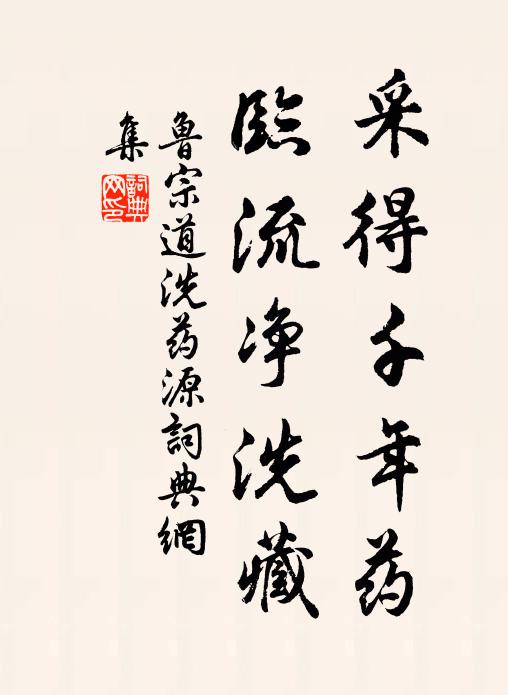 采得千年药
臨流净洗藏
鲁宗道洗药源詞典網
集
詞典
网印